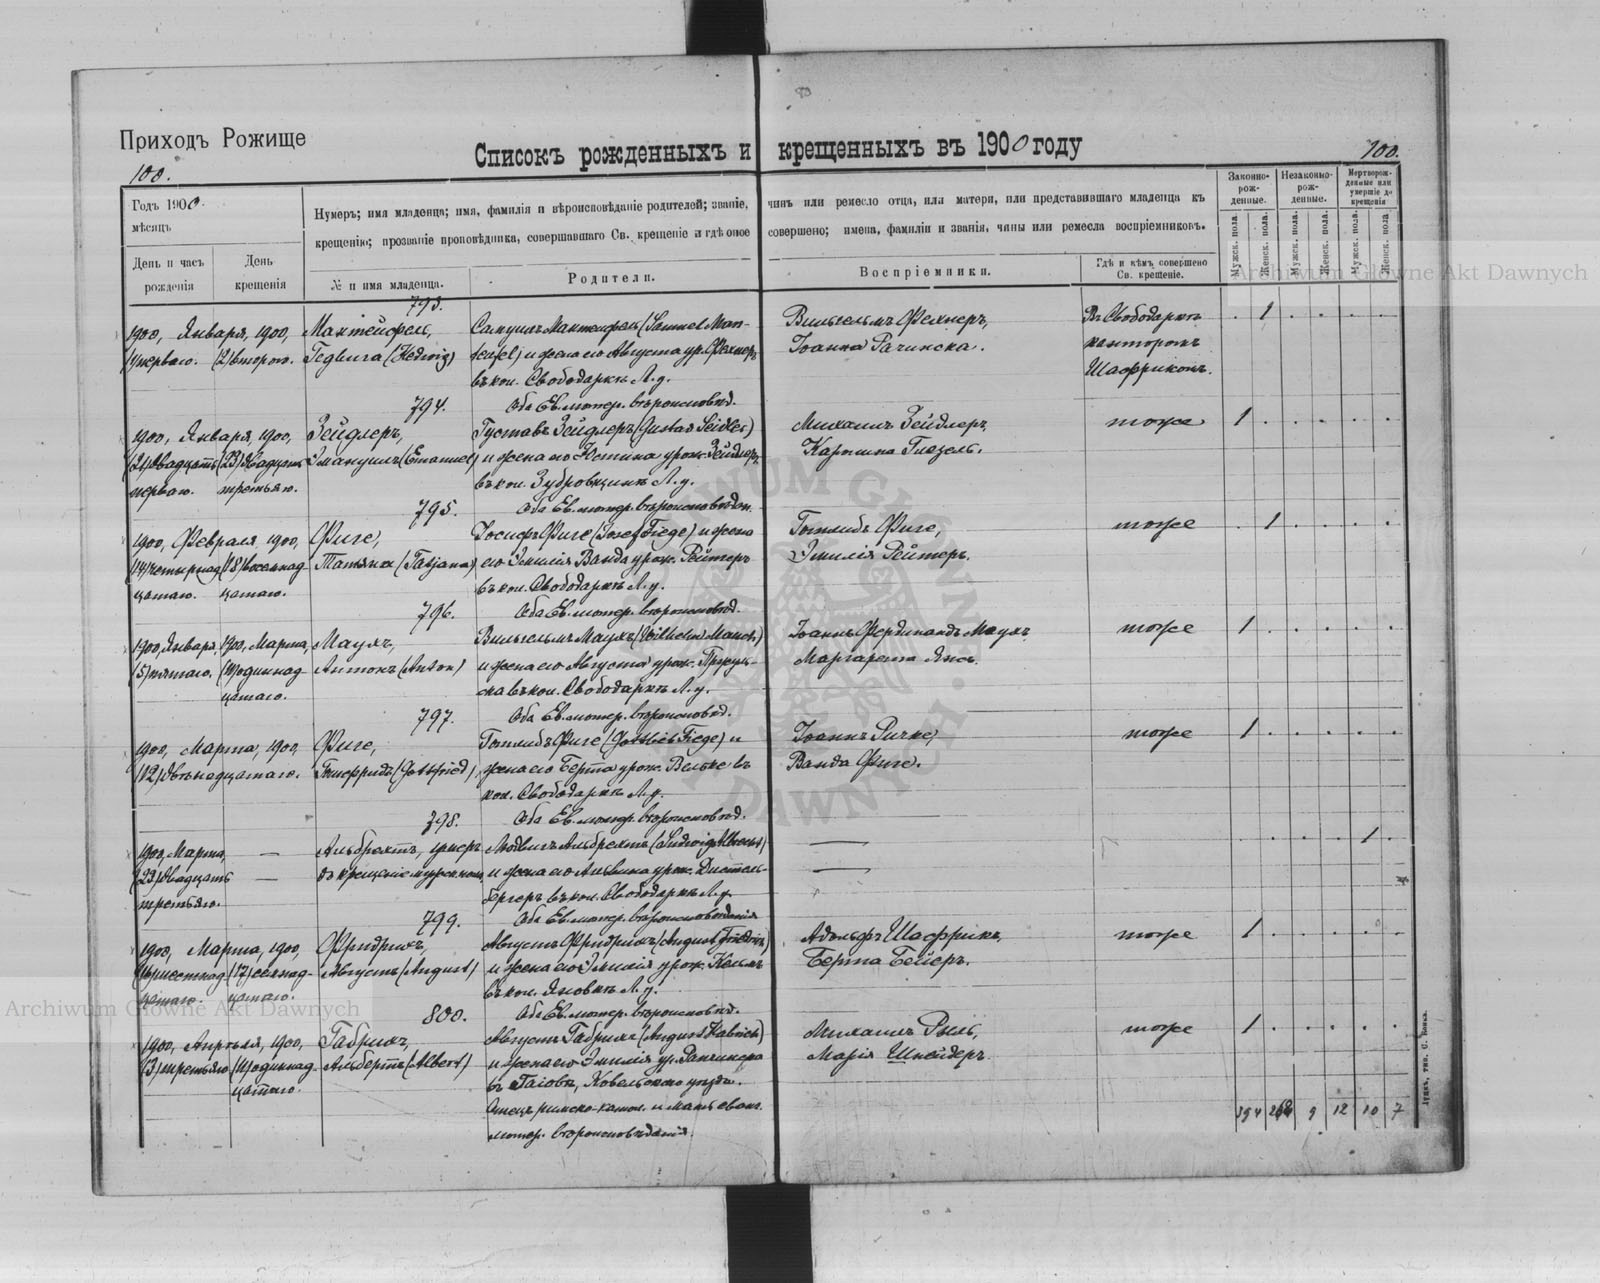 Приходъ Рожище
Списокъ рожденныхъ и крещенныхъ въ 1900 году
100.
100.
Годъ 1900.
мѣсяцъ
День и часъ рожденія
День крещенія
Нумеръ; имя младенца; имя, фамилія и вѣроисповѣданіе родителей; званіе, чинъ или ремесло отца, или матери, или представившаго младенца къ
крещенію; прозваніе проповѣдника, совершавшаго Св. крещеніе и гдѣ оное совершено; имена, фамиліи и званія, чины или ремесла воспріемниковъ.
№ и имя младенца.
Родители.
Воспріемники.
Гдѣ и кѣмъ совершено Св. крещеніе.
Законно-рож-денные.
Незаконно-рож-денные.
Мертворож-денные или умершіе до крещенія
Мужск. пола.
Женск. пола.
Мужск. пола.
Женск. пола.
Мужск. пола.
Женск. пола.
793.
1900, Января, 1900, Мантейфель, Самуилъ Мантейфель (Samuel Man- Вильгельмъ Фехнеръ, Въ Свободаркѣ 1
(1) перваго. (2) второго. Гедвига (Hedwig) teufel) и жена его Августа ур. Фехнеръ Іоанна Рачинска. канторомъ
въ кол. Свободаркѣ Л. у. Шаффрикомъ.
794. Оба Ев. лютер. вѣроисповѣд.
1900, Января, 1900, Зейдлеръ, Густавъ Зейдлеръ (Gustav Seidler) Михаилъ Зейдлеръ, тоже 1
(21) двадцать (23) двадцать Эмануилъ (Emanuel) и жена его Юстина урож. Зейдлеръ, Каролина Гиезель.
перваго. третьяго. въ кол. Зубровщинѣ Л. у.
795. Оба Ев. лютер. вѣроисповѣдан.
1900, Февраля, 1900, Фиге, Іосифъ Фиге (Josef Fiege) и жена Готлибъ Фиге, тоже 1
(14) четырнад (18) восемнад Татьяна (Tatjana) его Эмилія Ванда урож. Рейтеръ Эмилія Рейтеръ.
цатаго. цатаго. въ кол. Свободаркѣ Л. у.
796. Оба Ев. лютер. вѣроисповѣд.
1900, Января, 1900, Марта, Маухъ, Вильгельмъ Маухъ (Wilhelm Mauch) Іоаннъ Фердинандъ Маухъ, тоже 1
(5) пятаго. (11) одиннад Антонъ (Anton) и жена его Августа урож. Маргарета Янсъ.
цатаго. ска въ кол. Свободаркѣ Л. у.
797. Оба Ев. лютер. вѣроисповѣд.
1900, Марта, 1900, Фиге, Готлибъ Фиге (Gottlieb Fiege) и Іоаннъ Ричке, тоже 1
(12) двѣнадцатаго. Готфридъ (Gottfried), жена его Берта урож. Вельке въ Ванда Фиге.
кол. Свободаркѣ Л. у.
798. Оба Ев. лютер. вѣроисповѣд.
1900, Марта, — Альбрехтъ, умеръ Людвигъ Альбрехтъ (Ludwig Albrecht) — 1
(23) двадцать — до крещенія и жена его Альвина урож. Дистель- —
третьяго. бергеръ въ кол. Свободаркѣ Л. у.
799. Оба Ев. лютер. вѣроисповѣданія
1900, Марта, 1900, Фридрихъ, Августъ Фридрихъ (August Friedrich) Адольфъ Шаффрикъ, тоже 1
(16) шестнад (17) семнад- Августъ (August) и жена его Эмилія урож. Кельмъ Берта Бейеръ.
цатаго. цатаго. въ кол. Яновкѣ Л. у.
800. Оба Ев. лютер. вѣроисповѣд.
1900, Апрѣля, 1900, Габрихъ, Августъ Габрихъ (August Habrich) Михаилъ Рыль, тоже 1
(3) третьяго (11) одиннад- Альбертъ (Albert) и жена его Эмилія ур. Марія Шнейдеръ.
цатаго. въ Гаювкѣ, Ковельскаго уѣзда.
Отецъ римско-катол. и мать еванг.
лютер. вѣроисповѣданія.
394 268 9 12 10 7
Луцкъ, тип. С. Бонка.
Archiwum Główne Akt Dawnych
Archiwum Główne Akt Dawnych
ARCHIWUM GŁÓWNE AKT DAWNYCH